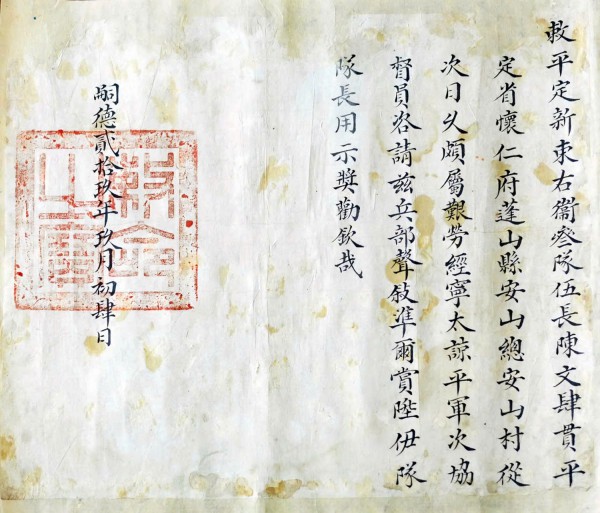 敕平定新東右衞叄隊伍長陳文肆貫平
定省懷仁府蓬山縣安山總安山村從
次日久頗屬艱勞經寧太諒平軍次協
督員咨請兹兵部聲敍准爾賞陞伊隊
隊長用示獎勸欽哉
嗣德貳拾玖年玖月初肆日